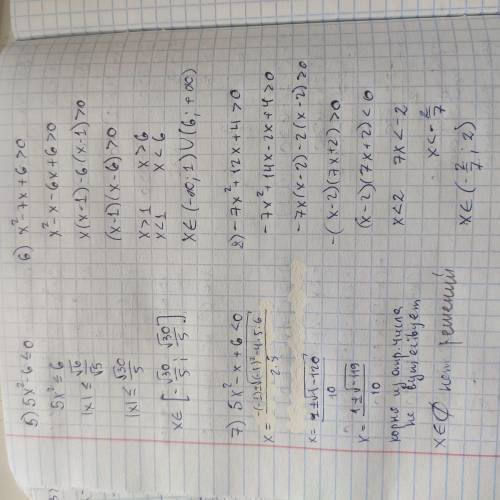 5) 5x²-6≤0
5x²≤6
|x| ≤ √6/√5
|x| ≤ √30/5
x∈[-√30/5; √30/5]
6) x²-7x+6>0
x²-x-6x+6>0
x(x-1)-6(x-1)>0
(x-1)(x-6)>0
x>1 x>6
x<1 x<6
x∈(-∞;1)∪(6;+∞)
7) 5x²-x+6<0
x = -(-1)±√(-1)²-4·5·6 / 2·5
x = 1±√1-120 / 10
x = 1±√-119 / 10
корня из отр. числа
не существует
x∈∅ нет решений
8) -7x²+12x+4>0
-7x²+14x-2x+4>0
-7x(x-2)-2(x-2)>0
-(x-2)(7x+2)>0
(x-2)(7x+2)<0
x<2 7x<-2
x<-2/7
x∈(-2/7; 2)